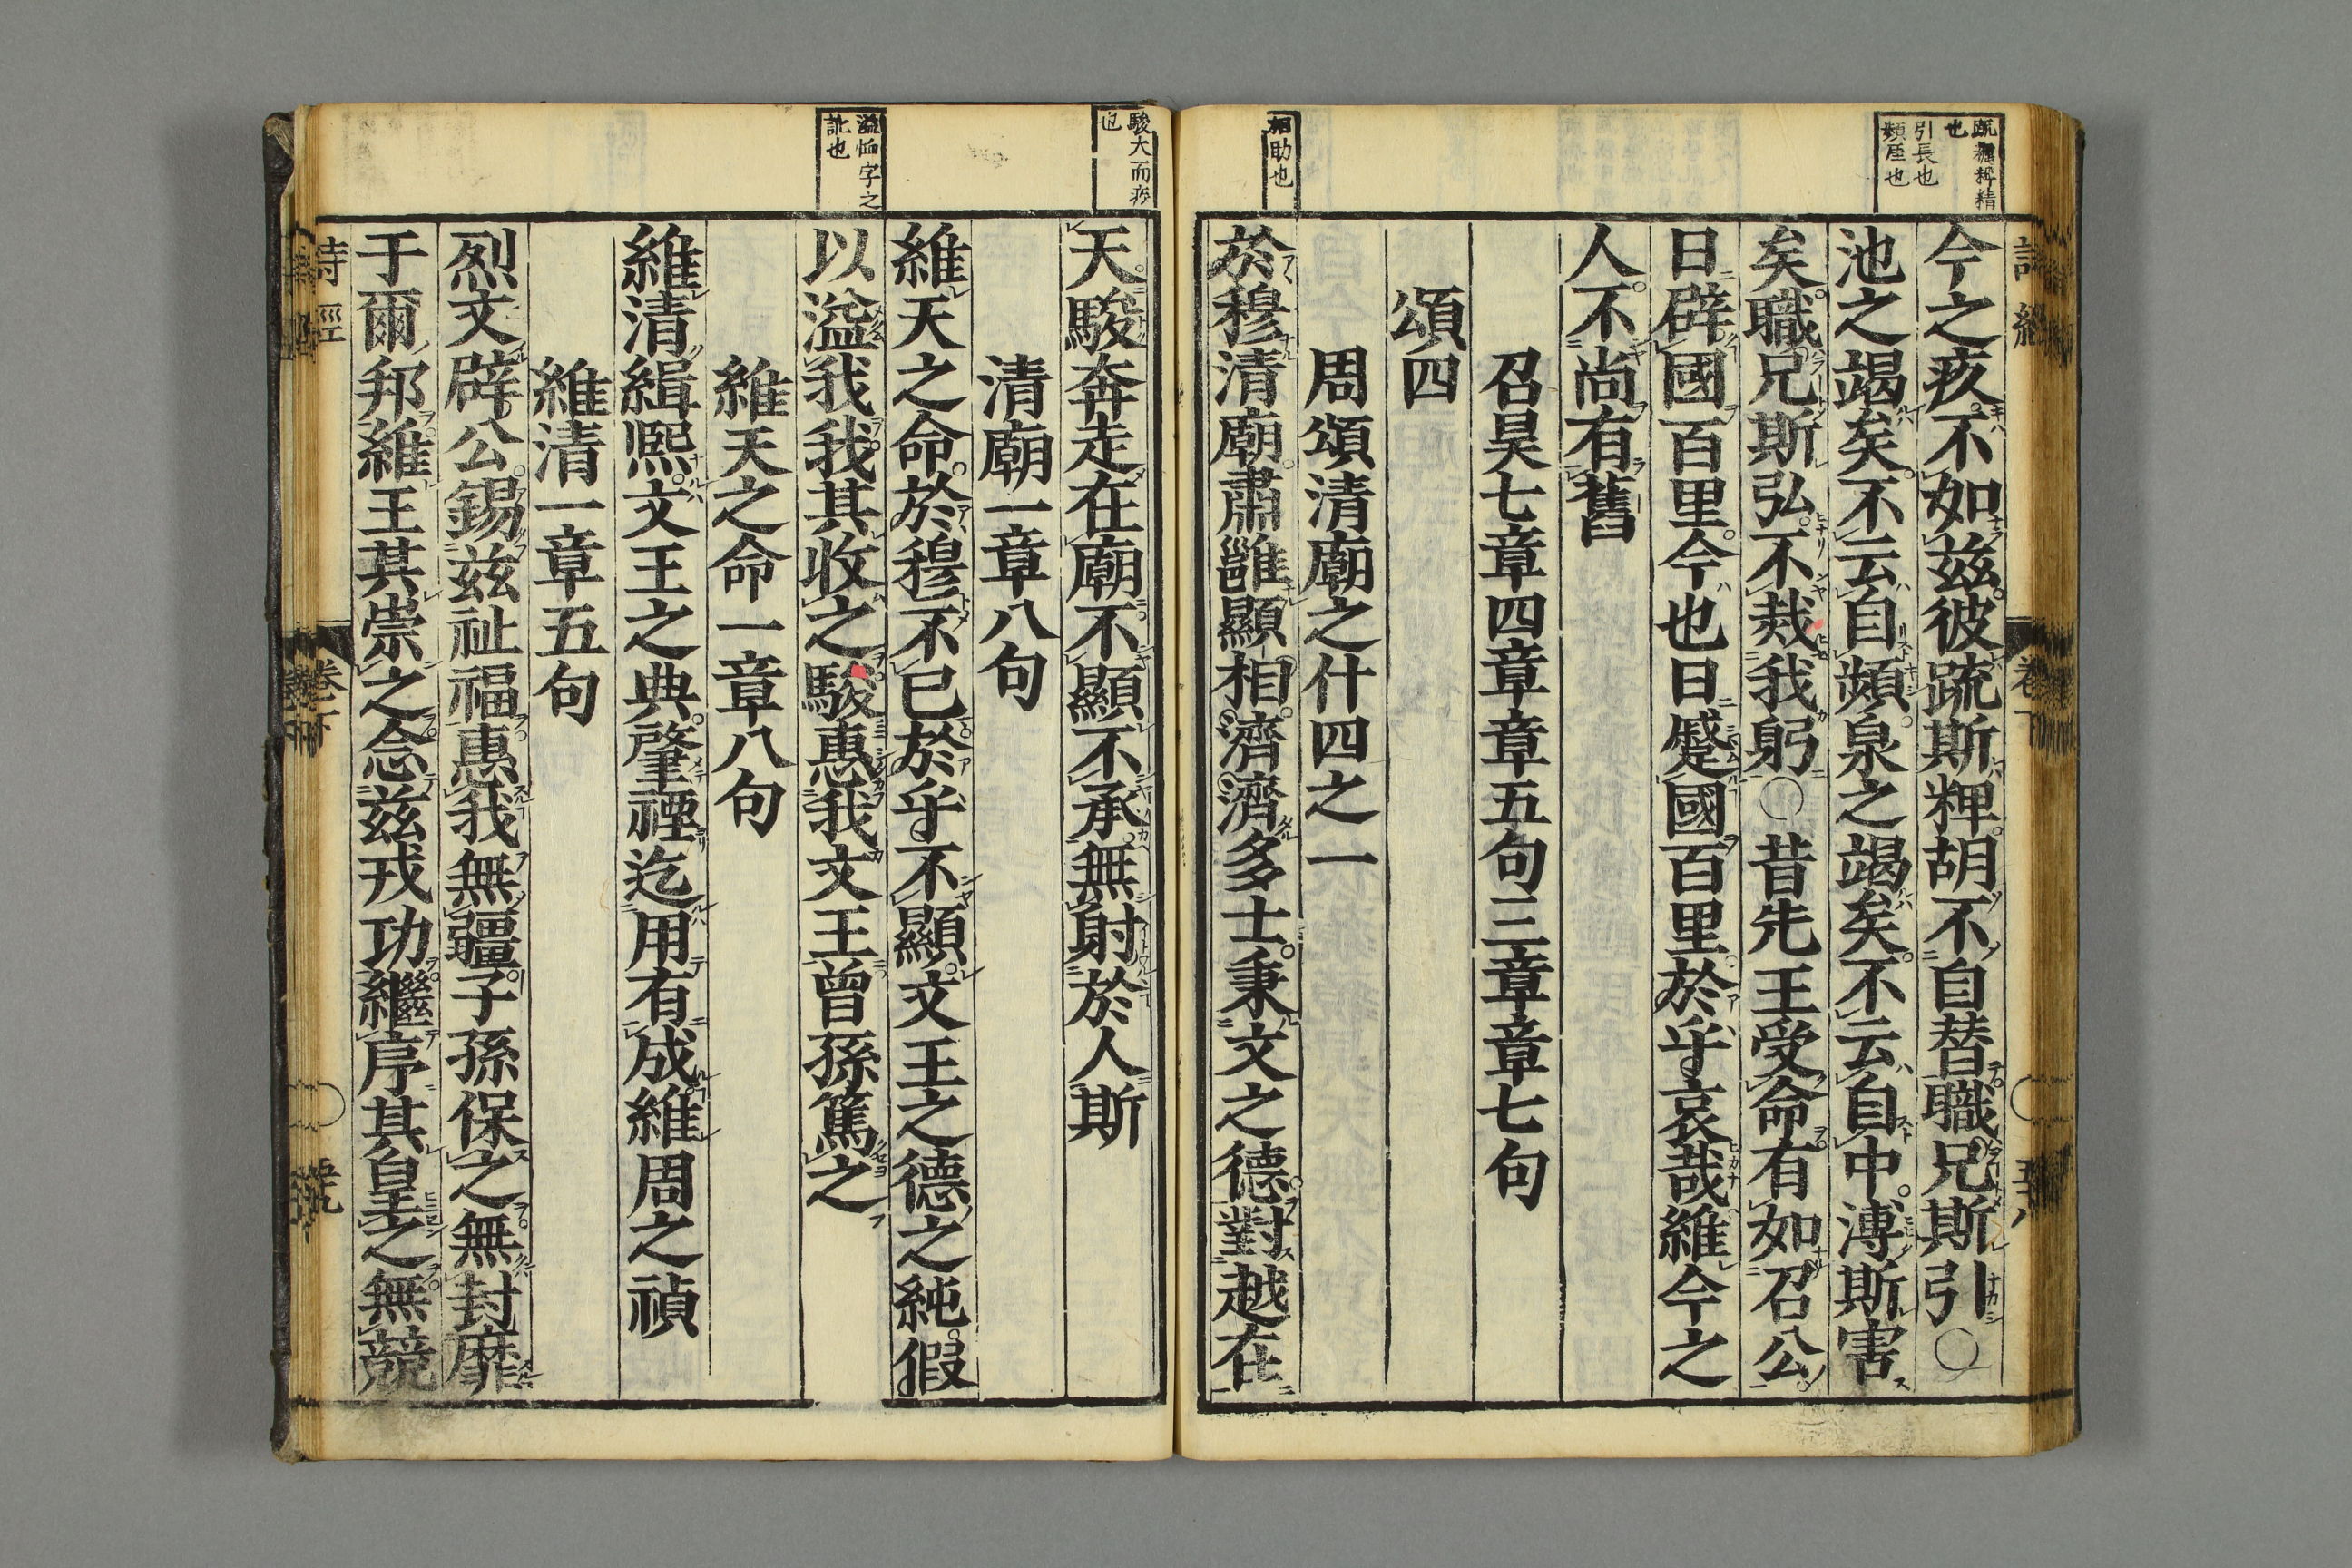 疏糲粺精
也
引長也
頻厓也
相助也
今之疚不如茲彼疏斯粺胡不自替職兄斯引〇
池之竭矣不云自頻泉之竭矣不云自中溥斯害
矣職兄斯弘不烖我躬〇昔先王受命有如召公
日辟國百里今也日蹙國百里於乎哀哉維今之
人不尚有舊
召旻七章四章章五句三章章七句
頌四
周頌清廟之什四之一
於穆清廟肅雝顯相濟濟多士秉文之德對越在
駿大而疾
也
溢恤字之
訛也
天駿奔走在廟不顯不承無射於人斯
清廟一章八句
維天之命於穆不已於乎不顯文王之德之純假
以溢我我其收之駿惠我文王曾孫篤之
維天之命一章八句
維清緝熙文王之典肇禋迄用有成維周之禎
維清一章五句
烈文辟公錫茲祉福惠我無疆子孫保之無封靡
于爾邦維王其崇之念茲戎功繼序其皇之無競
詩經
卷下